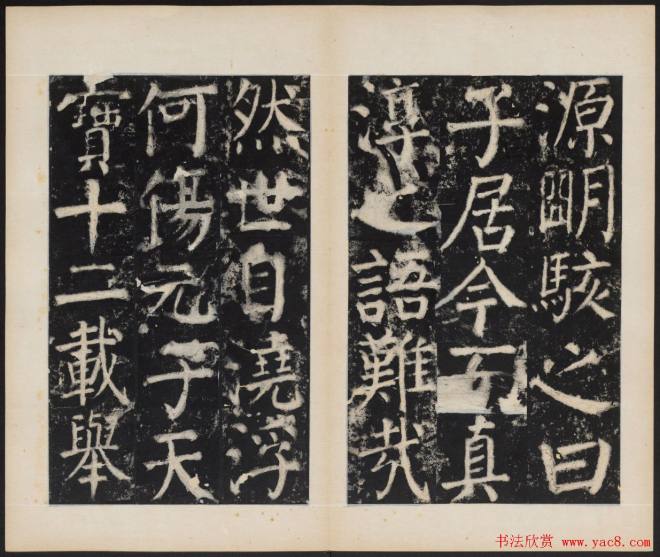 源朙駭之曰
子居今而真
淳之語難哉
然世自澆浮
何傷元子天
寶十二載舉
书法欣赏 www.yac8.com